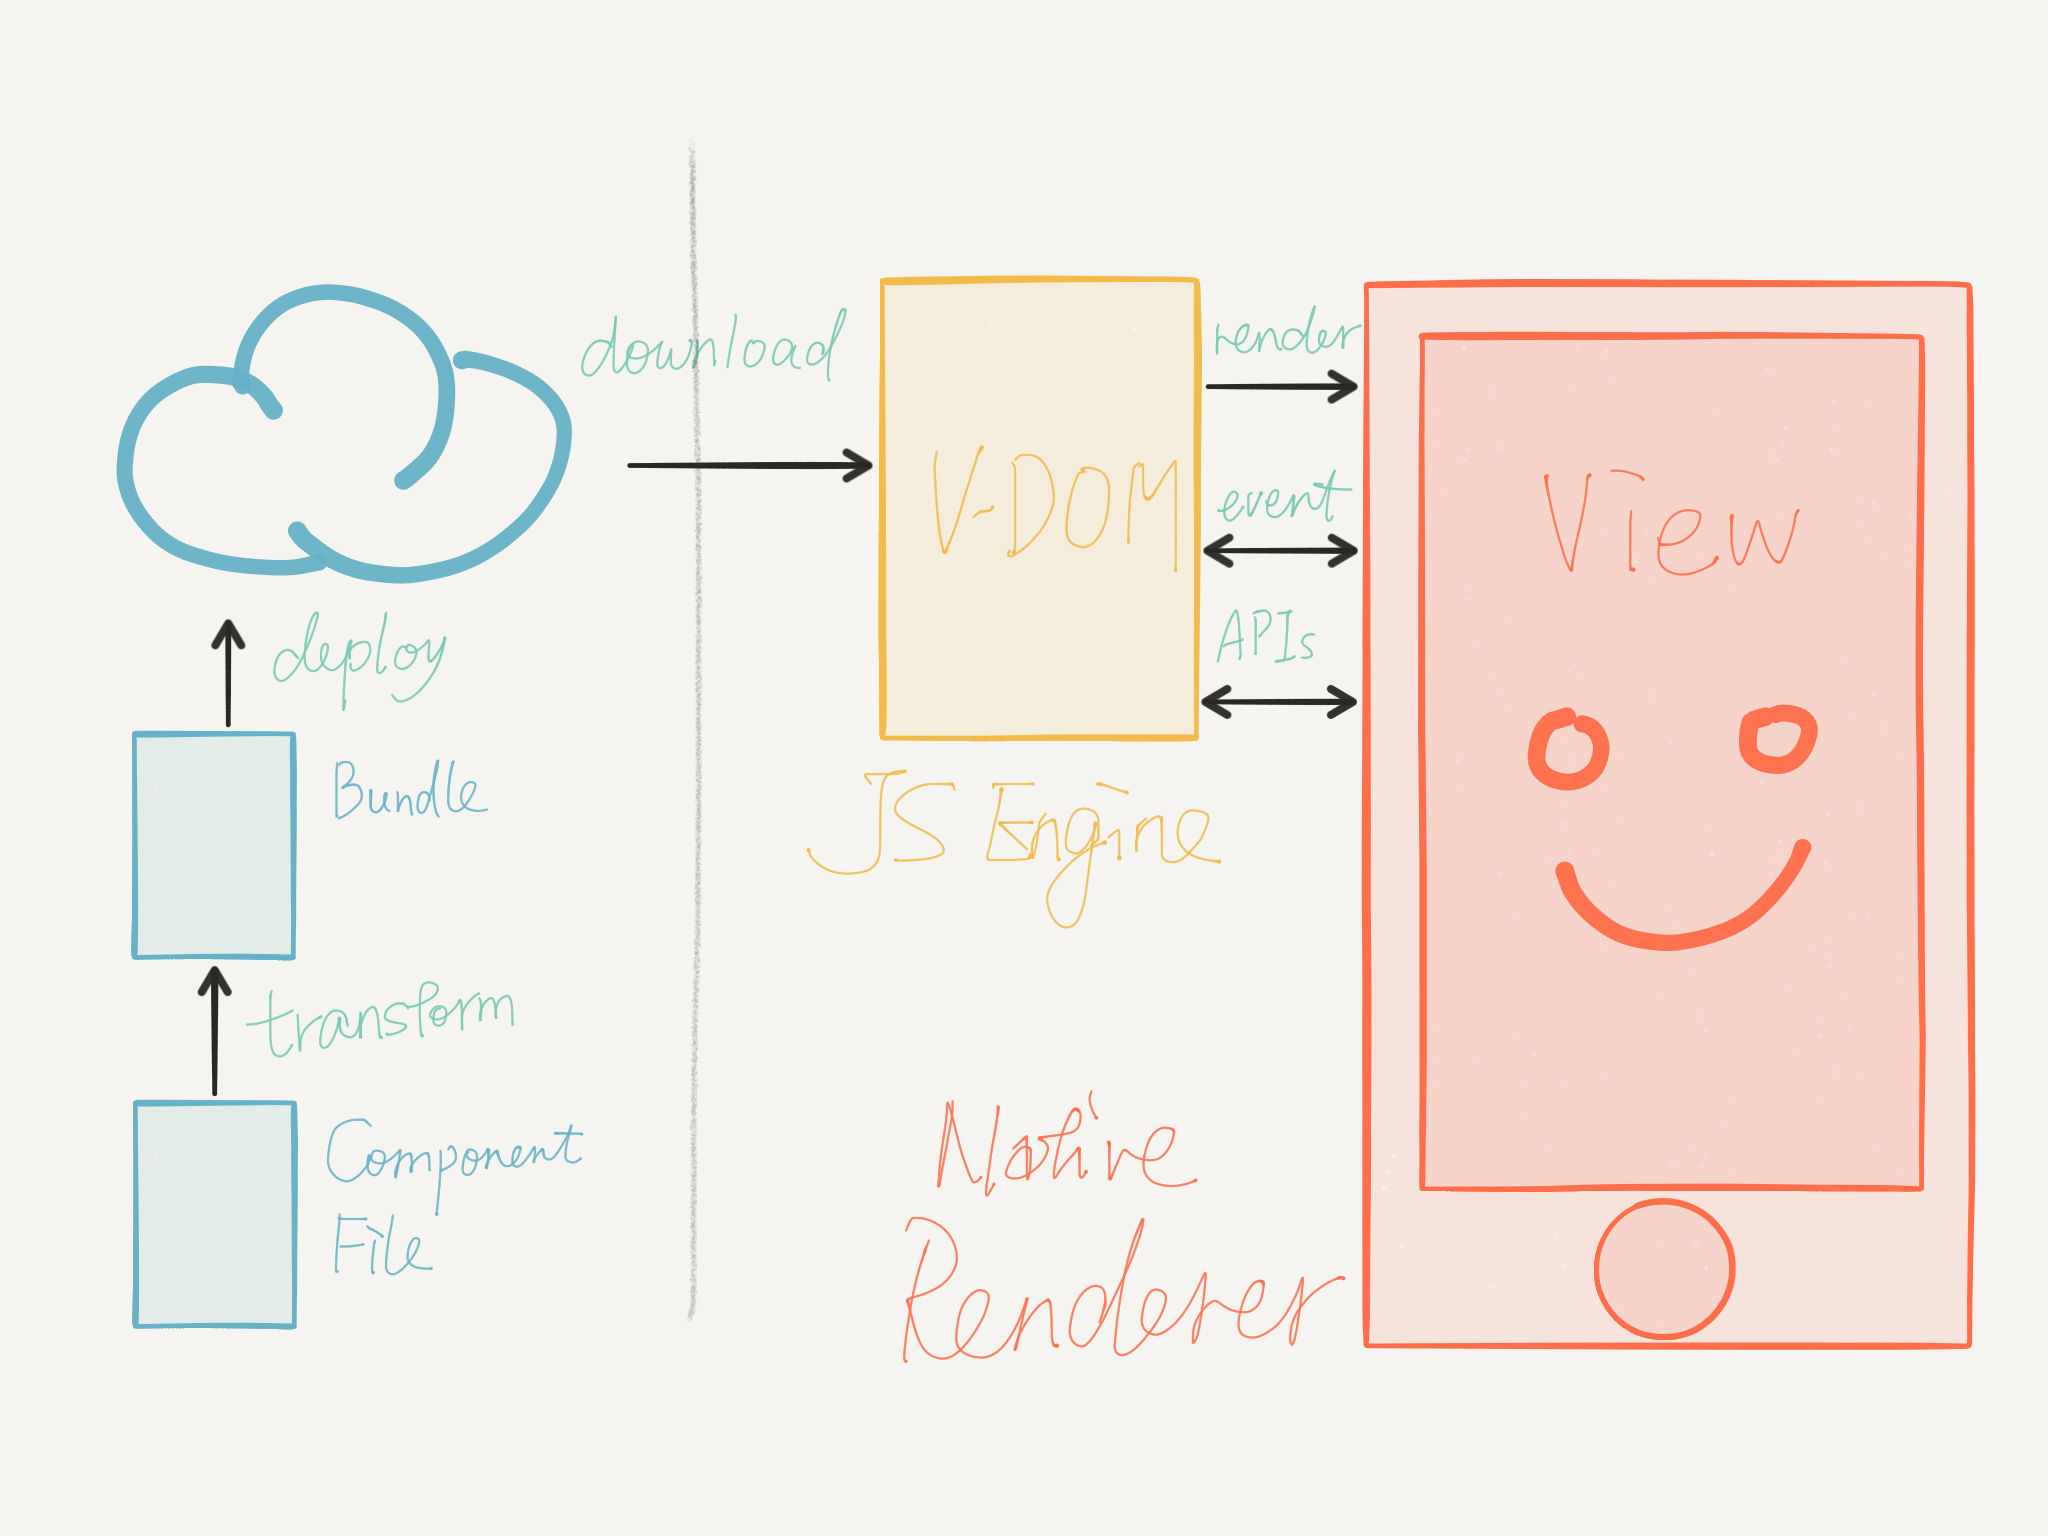 download
deploy
Bundle
transform
Component
File
V-DOM
JS Engine
render
event
APIs
View
Native
Renderer